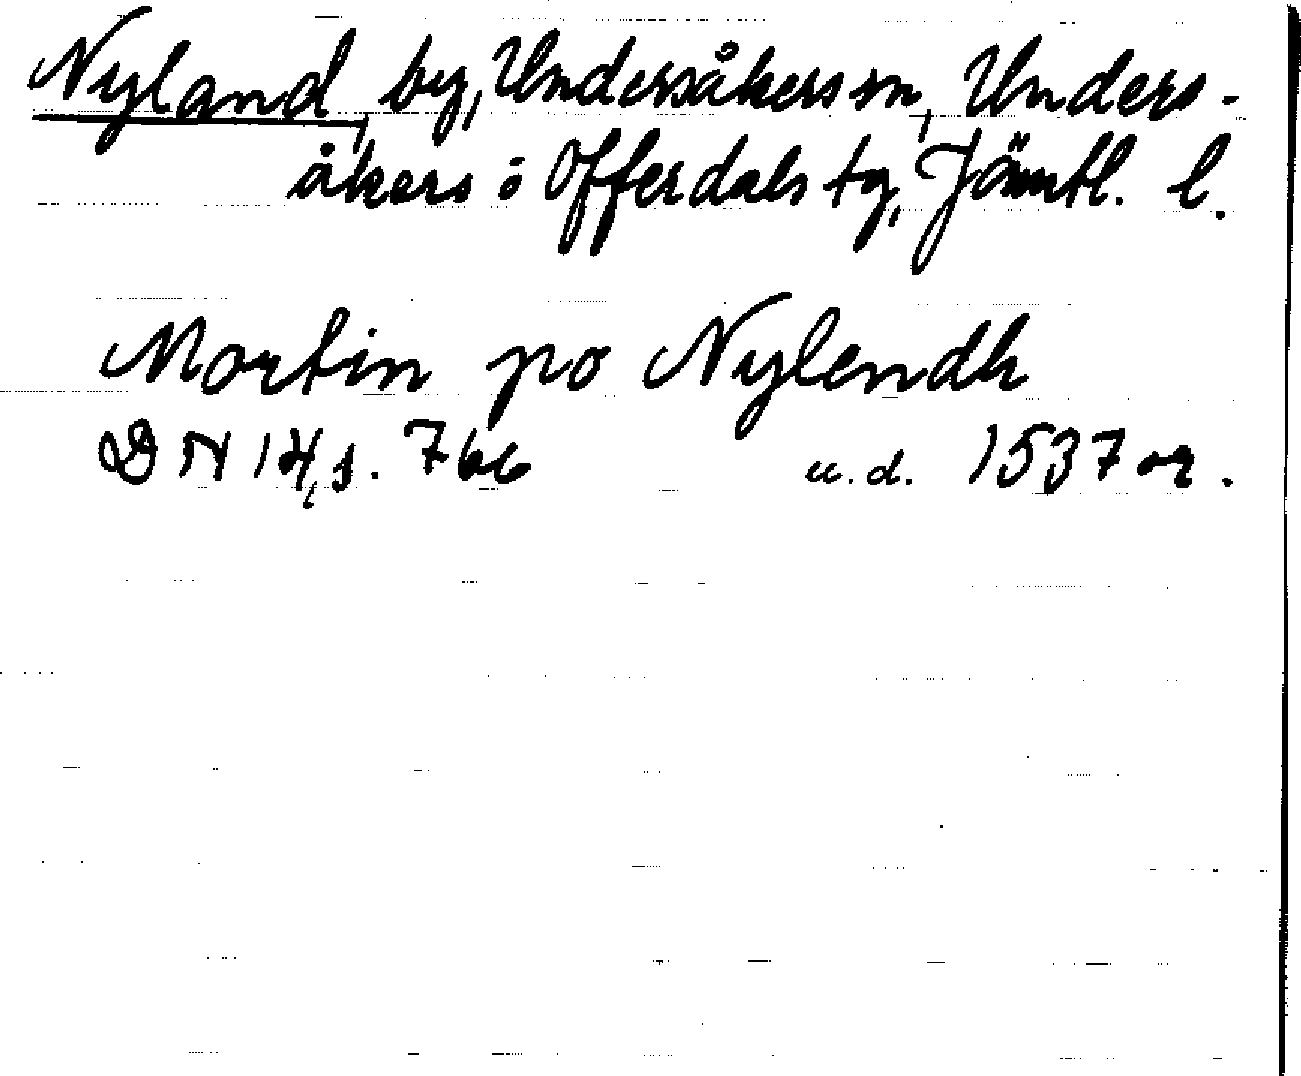 Nyland, by, Undersåkers sn, Unders-
åkers o Offerdals tg, Jämtl. l.
Mortin po Nylendh
DN 14, s. 766 u.d. 1537 or.